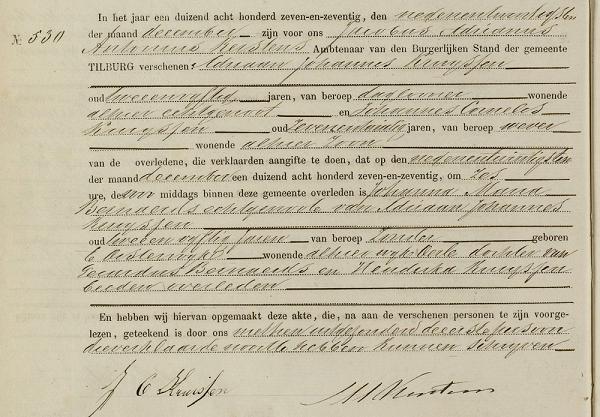 № 530
In het jaar een duizend acht honderd zeven-en-zeventig, den negenentwintigsten
der maand december zijn voor ons Jacobus Adrianus
Antonius Kerstens Ambtenaar van den Burgerlijken Stand der gemeente
TILBURG verschenen: Adriaan Johannes Kruijssen
oud tweeenvijftig jaren, van beroep daglooner wonende
alhier echtgenoot en Johannes Cornelis
Kruijssen oud zevenentwintig jaren, van beroep wever
wonende alhier zoon
van de overledene, die verklaarden aangifte te doen, dat op den negenentwintigsten
der maand december een duizend acht honderd zeven-en-zeventig, om zes
ure, des voor middags binnen deze gemeente overleden is Johanna Maria
echtgenoote van Adriaan Johannes
Kruijssen
oud tweeenvijftig jaren van beroep zonder geboren
te Oisterwijk wonende alhier wijk dochter van
en Hendrika Kruijssen
beiden overleden
En hebben wij hiervan opgemaakt deze akte, die, na aan de verschenen personen te zijn voorge-
lezen, geteekend is door ons met den uitgezonderd de eerste persoon
die verklaarde nooit te hebben kunnen schrijven
J C Kruissen
Kerstens